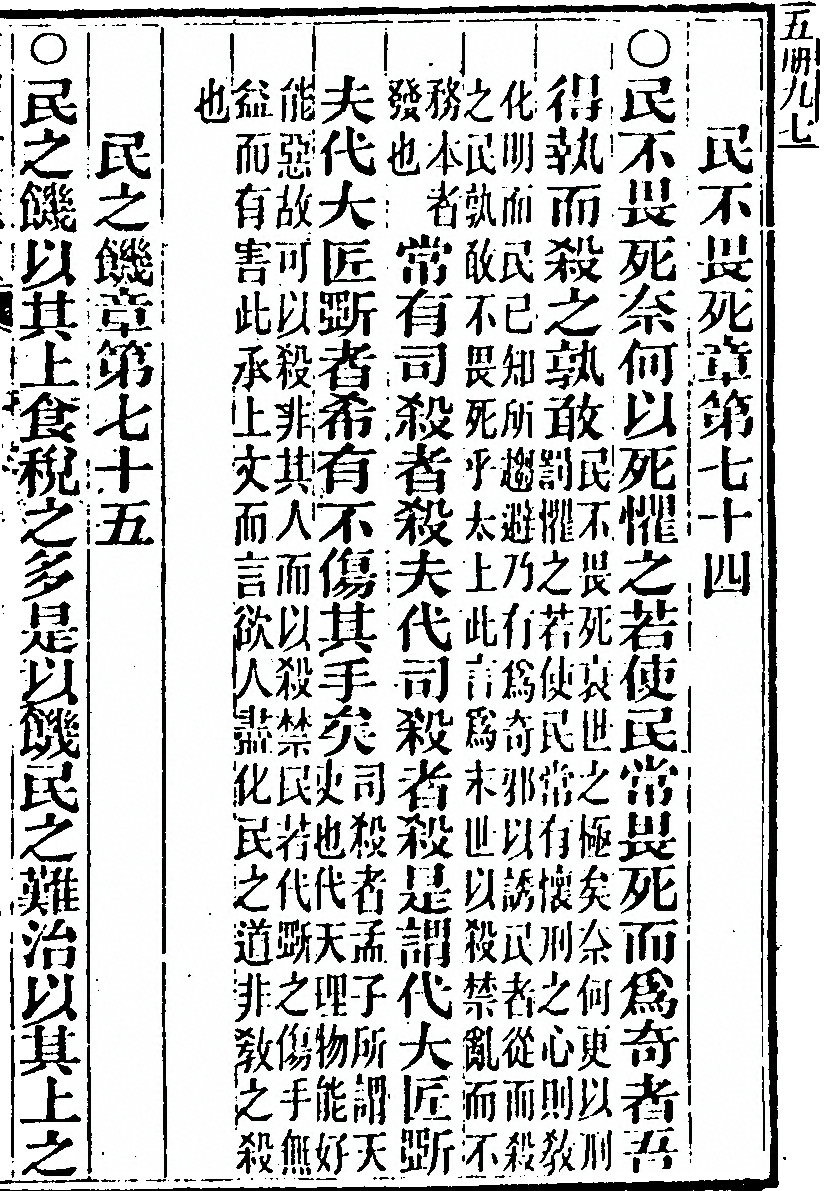 五册九七
民不畏死章第七十四
○民不畏死奈何以死懼之若使民常畏死而爲奇者吾
得執而殺之孰敢
民不畏死哀世之極矣奈何更以刑
罰懼之若使民常有懷刑之心則教
化明而民已知所趨避乃有爲奇邪以誘民者從而殺
之民孰敢不畏死乎太上此言爲末世以殺禁亂而不
務本者
發也
常有司殺者殺夫代司殺者殺是謂代大匠斲
夫代大匠斲者希有不傷其手矣
司殺者孟子所謂天
吏也代天理物能好
能惡故可以殺非其人而以殺禁民若代斲之傷手無
益而有害此承上文而言欲人盡化民之道非教之殺
也
民之饑章第七十五
○民之饑以其上食稅之多是以饑民之難治以其上之